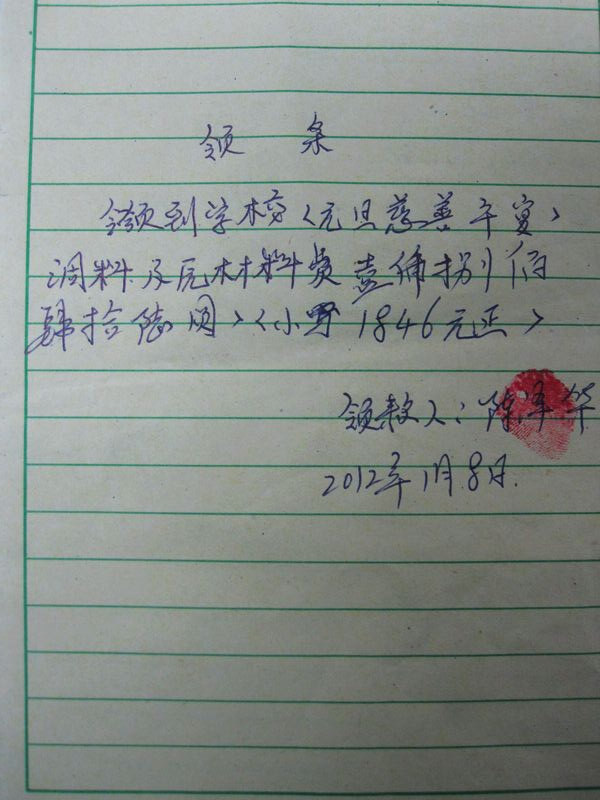 领 条
领到学校〈元旦慈善午宴〉
调料及原材料费壹仟捌佰
肆拾陆园〉〈小写1846元正〉
领款人：陈年华
2012年1月8日.